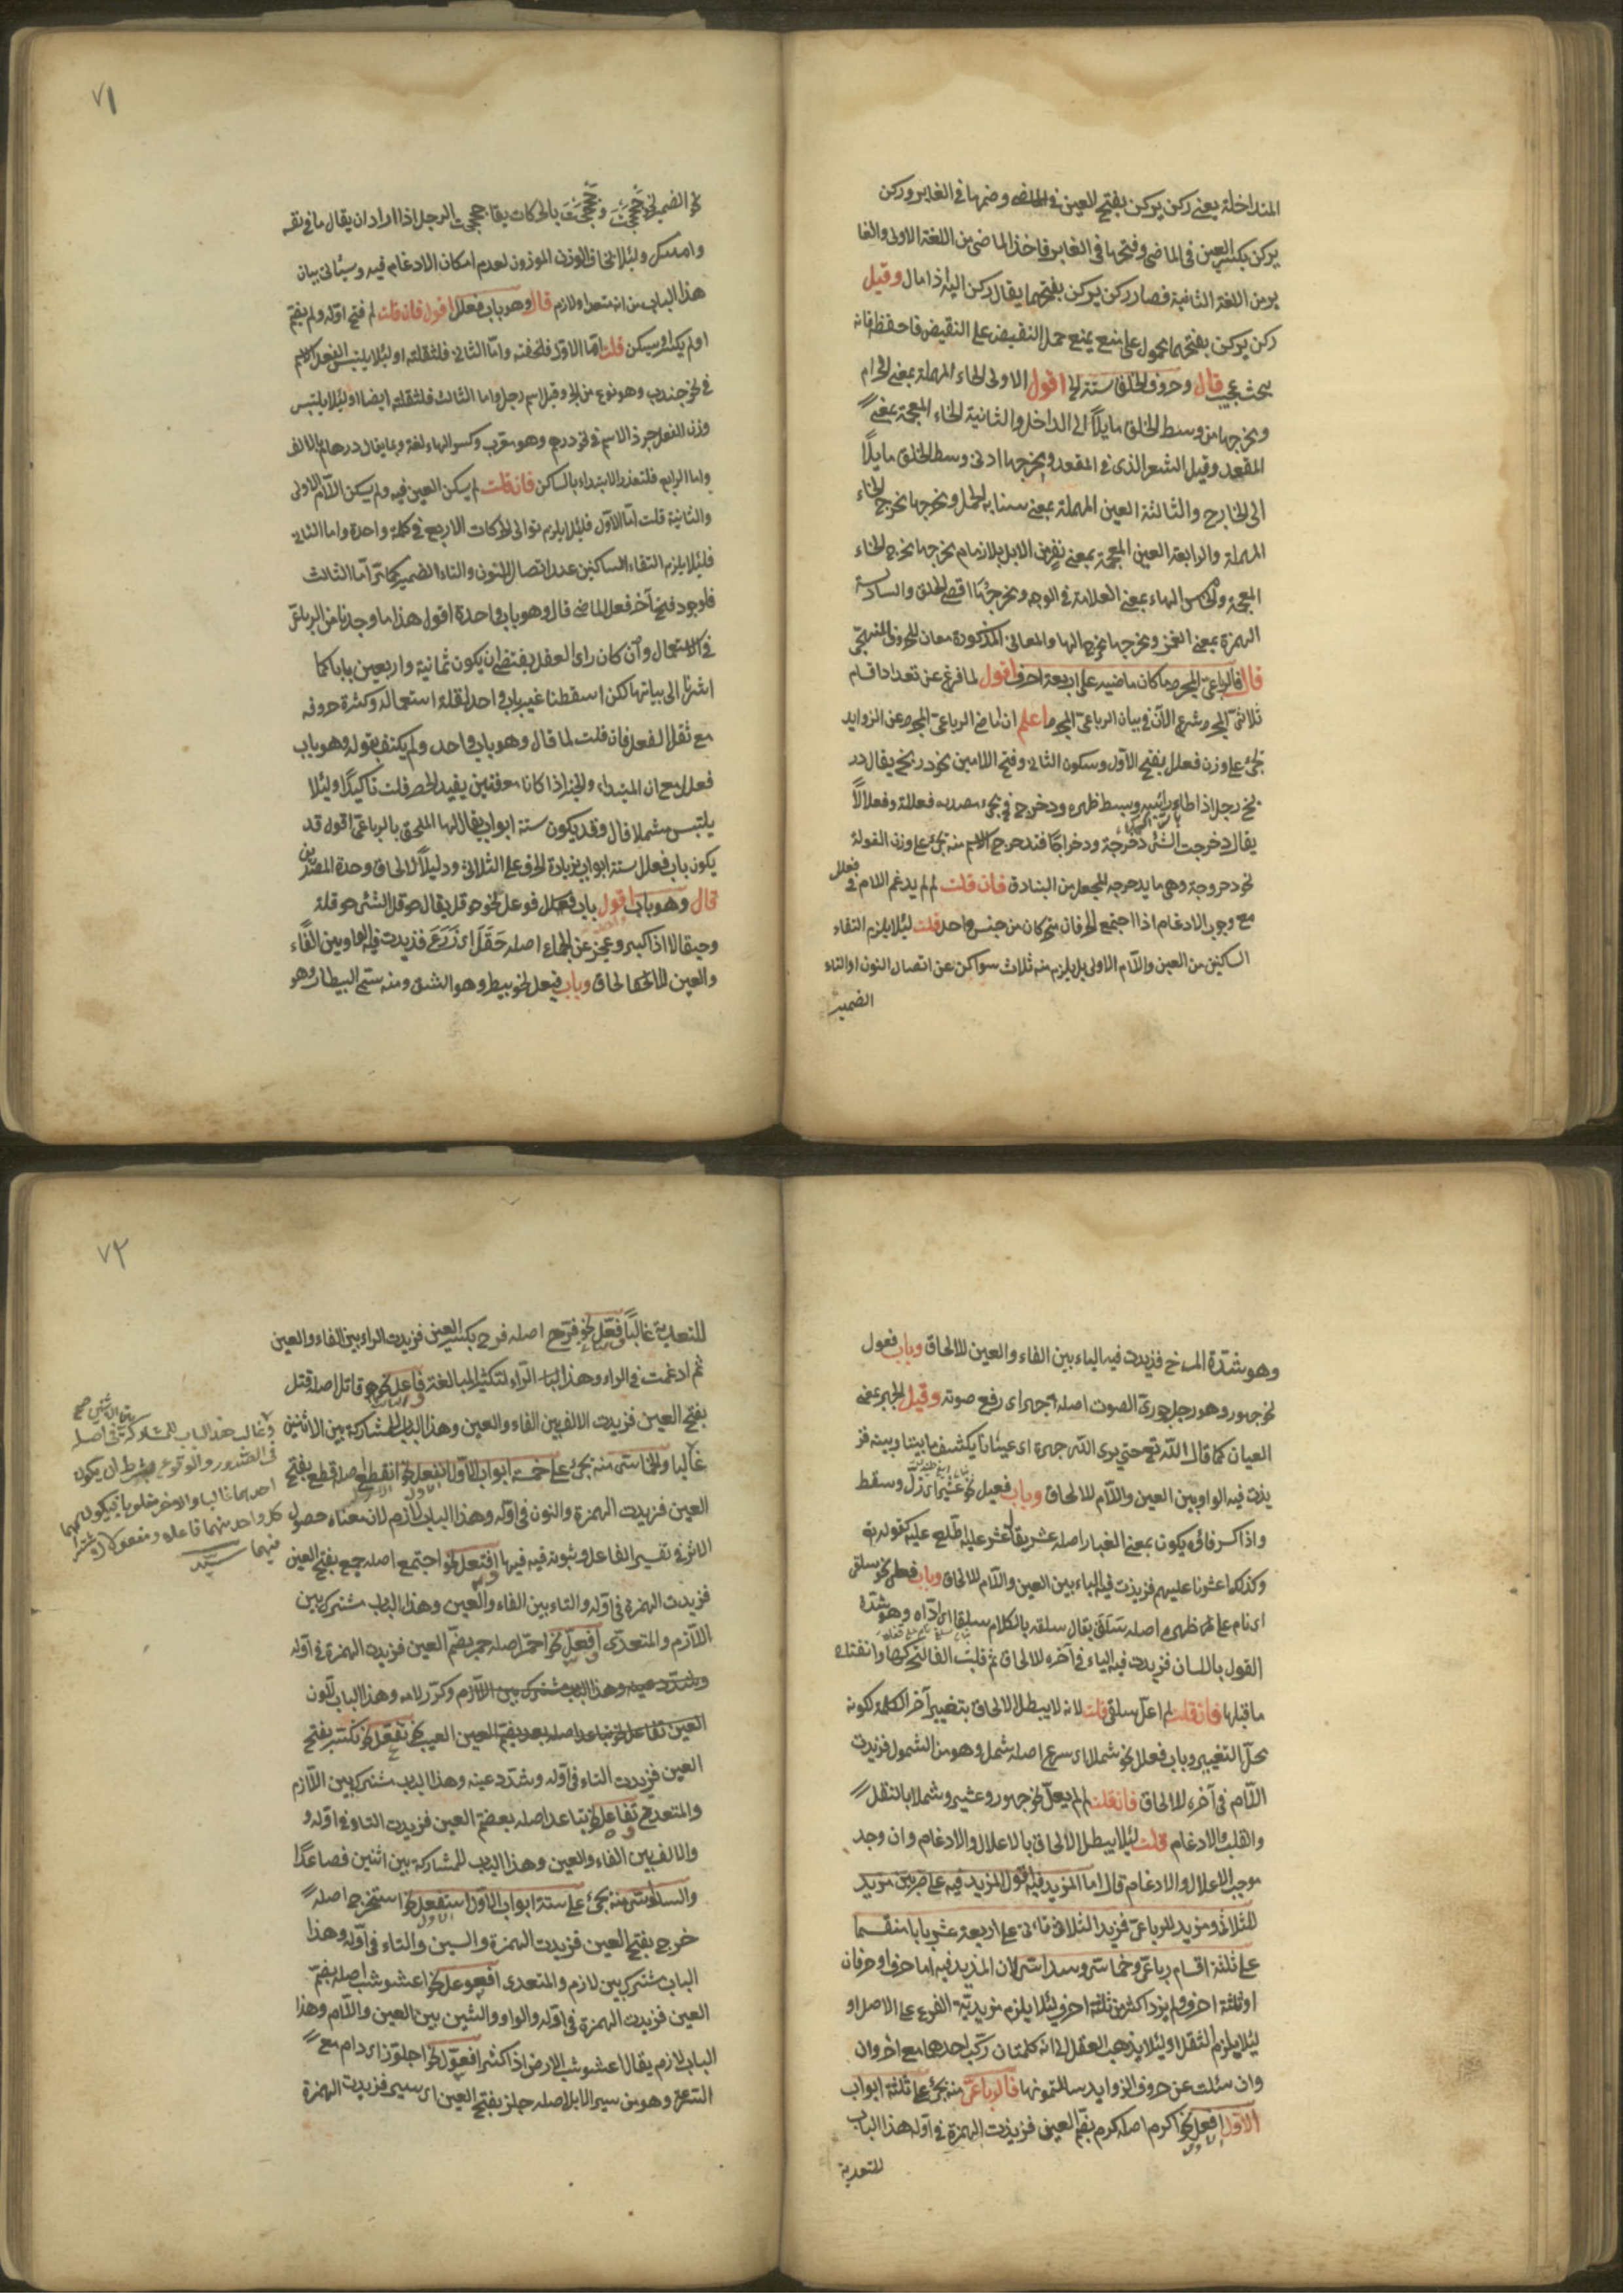 المتداخلة يعنى ركن يركن بفتح العين فى الماضى وضمها فى الغابر وركن
يركن بكسر العين فى الماضى وفتحها فى الغابر فاخذ الماضى من اللغة الاولى والغا
بر من اللغة الثانية فصار ركن يركن بفتحهما يقال ركن اليه اذا مال وقيل
ركن يركن بفتحهما محمول على منع يمنع حمل النقيض على النقيض فاحفظ فانه
بحث عجيب قال وحروف الحلق ستة الخ اقول الاولى الحاء المهملة بمعنى الحرام
ومخرجها من وسط الحلق مايلاً الى الداخل والثانية الخاء المعجمة بمعنى
المقعد وقيل الشعر الذى فى المقعد ومخرجها ادنى وسط الحلق مايلاً
الى الخارج والثالثة العين المهملة بمعنى سنا بـ الجمل ومخرجها مخرج الحاء
المهملة والرابعة الغين المعجمة بمعنى نفر من الابل بلا زمام مخرجها مخرج الخاء
المعجمة والخامس الهاء بمعنى العلامة فى الوجه ومخرجها اقصى الحلق والسادسة
الهمزة بمعنى الغمز ومخرجها مخرج الها والمعانى المذكورة معان للحروف التهجى
قال فالرباعى المجرد ما كان ماضيه على اربعة احرف اقول لما فرغ عن تعداد اقسام
ثلاثى المجرد شرع الآن فى بيان الرباعى المجرد اعلم ان الماضى الرباعى المجرد عن الزوايد
يجئ على وزن فعلل بفتح الاول وسكون الثانى وفتح اللامين نحو دربخ يقال در
بخ رجل اذا طاطأ رأسه وبسط ظهره ودحرج فى يجئ مصدره فعللة وفعلالاً
يقال دحرجت الشئ دحرجة ودحراجًا فتدحرج الاسم منه يجئ على وزن الفعولة
نحو دحروجة وهى ما يدحرجه الجعل من البنادق فان قلت لم لم يدغم اللام فى فعلل
مع وجوب الادغام اذا اجتمع الحرفان متحركان من جنس واحد قلت لئلا يلزم التقاء
الساكنين من العين واللام الاولى بل يلزم منه ثلاث سواكن عن اتصال النون او التاء
الضمير
٧١
نحو الضمير نحو حججت وحججن بالحركات يقا حججت الرجل اذا اراد ان يقال ما فى نفسه
وامسك ولئلا يخاف الوزن الموزون لعدم امكان الادغام فيه وسيأتى بيان
هذا الباب من انه متعد او لازم قال وهو باب فعلل اقول فان قلت لم فتح اوله ولم يضم
او لم يكسر او يسكن قلت اما الاول فلخفته واما الثانى فلثقلته او لئلا يلتبس الفعل الاسم
فى نحو جندب وهو نوع من الجراد وقيل اسم رجل واما الثالث فلثقلته ايضا او لئلا يلتبس
وزن الفعل بوزن الاسم فى نحو درهم وهو معرب وكسر الهاء لغة وربما يقال درهام بالالف
واما الرابع فلتعذر الابتداء بالساكن فان قلت لم يسكن العين فيه ولم يسكن اللام الاولى
والثانية قلت اما الاول فلئلا يلزم توالى الحركات الاربع فى كلمة واحدة واما الثانى
فلئلا يلزم التقاء الساكنين عند اتصال النون والتاء الضمير كما مر اما الثالث
فلوجود فتح آخر فعل الماضى قال وهو باب واحدة اقول هذا ما وجدنا من الرباعى
فى الاستعمال وان كان راى العقل يقتضى ان يكون ثمانية واربعين بابا كما
اشرنا الى بيانها لكن اسقطنا غير باب واحد لقلة استعماله وكثرة حروفه
مع ثقل الفعل فان قلت لما قال وهو باب واحد ولم يكتف بقوله وهو باب
فعلل مع ان المبتداء والخبر اذا كانا معرفتين يفيد الحصر قلت تأكيدًا او لئلا
يلتبس بشملل قال وقد يكون ستة ابواب يقال لها الملحق بالرباعى اقول قد
يكون باب فعلل ستة ابواب بزيادة الحرف على الثلاثى ودليل الالحاق وحدة المصدرين
قال وهو باب اقول باب فوعل نحو حوقل يقال حوقل الشئ حوقلة
وحيقالا اذا كبر وعجز عن الجماع اصله حَقَلَ اى زَرَعَ فزيدت فيه الواو بين الفاء
والعين للالحاق وباب فيعل نحو بيطر وهو الشق ومنه ستمى البيطار وهو
وهو شدة المرخ فزيدت فيه الياء بين الفاء والعين للالحاق وباب فعول
نحو جهور وهو رجل جهورى الصوت اصله جهر اى رفع صوته وقيل الجهر بمعنى
العيان كما قال الله تع حتى يرى الله جهرة اى عيانا يكشف ما بيننا وبينه فز
يدت فيه الواو بين العين واللام للالحاق وباب فعيل نحو عثير اى زل وسقط
واذا كسر فاؤه يكون بمعنى الغبار اصله عثر يقال عثر عليه اطلع عليه كقوله تع
وكذلك اعثرنا عليهم فزيدت فيه الياء بين العين واللام للالحاق وباب فعلى نحو سلقى
اى نام على ظهره اصله سَلَقَ يقال سلقه بالكلام سلقا اى اذاه وهو شدة
القول باللسان فزيدت فيه الياء فى آخره للالحاق ثم قلبت الفا لتحركها وانفتاح
ما قبلها فان قلت لم اعل سلقى قلت لانه لا يبطل الالحاق بتغيير آخر الكلمة لكونه
محل التغيير وباب فعلل نحو شملل اى سرع اصله شمل وهو من الشمول فزيدت
اللام فى آخره للالحاق فان قلت لم لم يعل نحو جهور وعثير وشملل بالنقل
والقلب والادغام قلت لئلا يبطل الالحاق بالاعلال والادغام وان وجد
موجب الاعلال والادغام قال اما المزيد فيه اقول المزيد فيه على ضربين مزيد
الثلاثى ومزيد الرباعى فمزيد الثلاثى تأتى على اربعة عشر بابا منقسما
على ثلثة اقسام رباعى وخماسى وسداسى لان المزيد فيه اما حرف او حرفان
او ثلثة احرف ولم يزد اكثر من ثلثة احرف لئلا يلزم مزيدية الفرع على الاصل او
لئلا يلزم الثقل او لئلا يذهب العقل الى انه كلمتان ركب احدهما مع اخر وان
وان سئلت عن حروف الزوايد سالتمونيها فالرباعى منه يجئ على ثلثة ابواب
الاول افعل نحو اكرم اصله كرم بضم العين فزيدت الهمزة فى اوله هذا الباب
للتعدية
٧٢
للتعدية غالبًا فعّل نحو فرّح اصله فرح بكسر العين فزيدت الراء بين الفاء والعين
ثم ادغمت فى الراء وهذا الباب لتكثير المبالغة فاعل نحو قاتل اصله قتل
بفتح العين فزيدت الالف بين الفاء والعين وهذا الباب للمشاركة بين الاثنين
غالبا والخماسى منه يجئ على خمسة ابواب الاول انفعل نحو انقطع اصله قطع بفتح
العين فزيدت الهمزة والنون فى اوله وهذا الباب لازم لان معناه حصول
الاثر فى نفس الفاعل وثبوته فيه افتعل نحو اجتمع اصله جمع بفتح العين
فزيدت الهمزة فى اوله والتاء بين الفاء والعين وهذا الباب مشترك بين
اللازم والمتعدى افعلّ نحو احمرّ اصله حمر بضم العين فزيدت الهمزة فى اوله
ويشدد عينه وهذا الباب مشترك بين اللازم وكرر لامه وهذا الباب للون
العين تفاعل نحو تباعد اصله بعد بضم العين العيب نحو تفعّل نحو تكسّر بفتح
العين فزيدت التاء فى اوله وشدد عينه وهذا الباب مشترك بين اللازم
والمتعدى تفاعل نحو تباعد اصله بعد بضم العين فزيدت التاء فى اوله و
والالف بين الفاء والعين وهذا الباب للمشاركة بين اثنين فصاعدًا
والسداسى منه يجئ على ستة ابواب الاول استفعل نحو استخرج اصله
خرج بفتح العين فزيدت الهمزة والسين والتاء فى اوله وهذا
الباب مشترك بين لازم والمتعدى افعوعل نحو اعشوشب اصله بضم
العين فزيدت الهمزة فى اوله والواو والشين بين العين واللام وهذا
الباب لازم يقال اعشوشب الارض اذا كثر افعوّل نحو اجلوّذ اى دام مع
السرعة وهو من سير الابل اصله جلذ بفتح العين اى سير فزيدت الهمزة
وغالب هذا الباب للمشاركة فى اصله
فى الصدور والوقوع بشرط ان يكون
احدهما غالبا والاخر مغلوبا فيكون
كل واحد منهما فاعلا ومفعولا
سيد